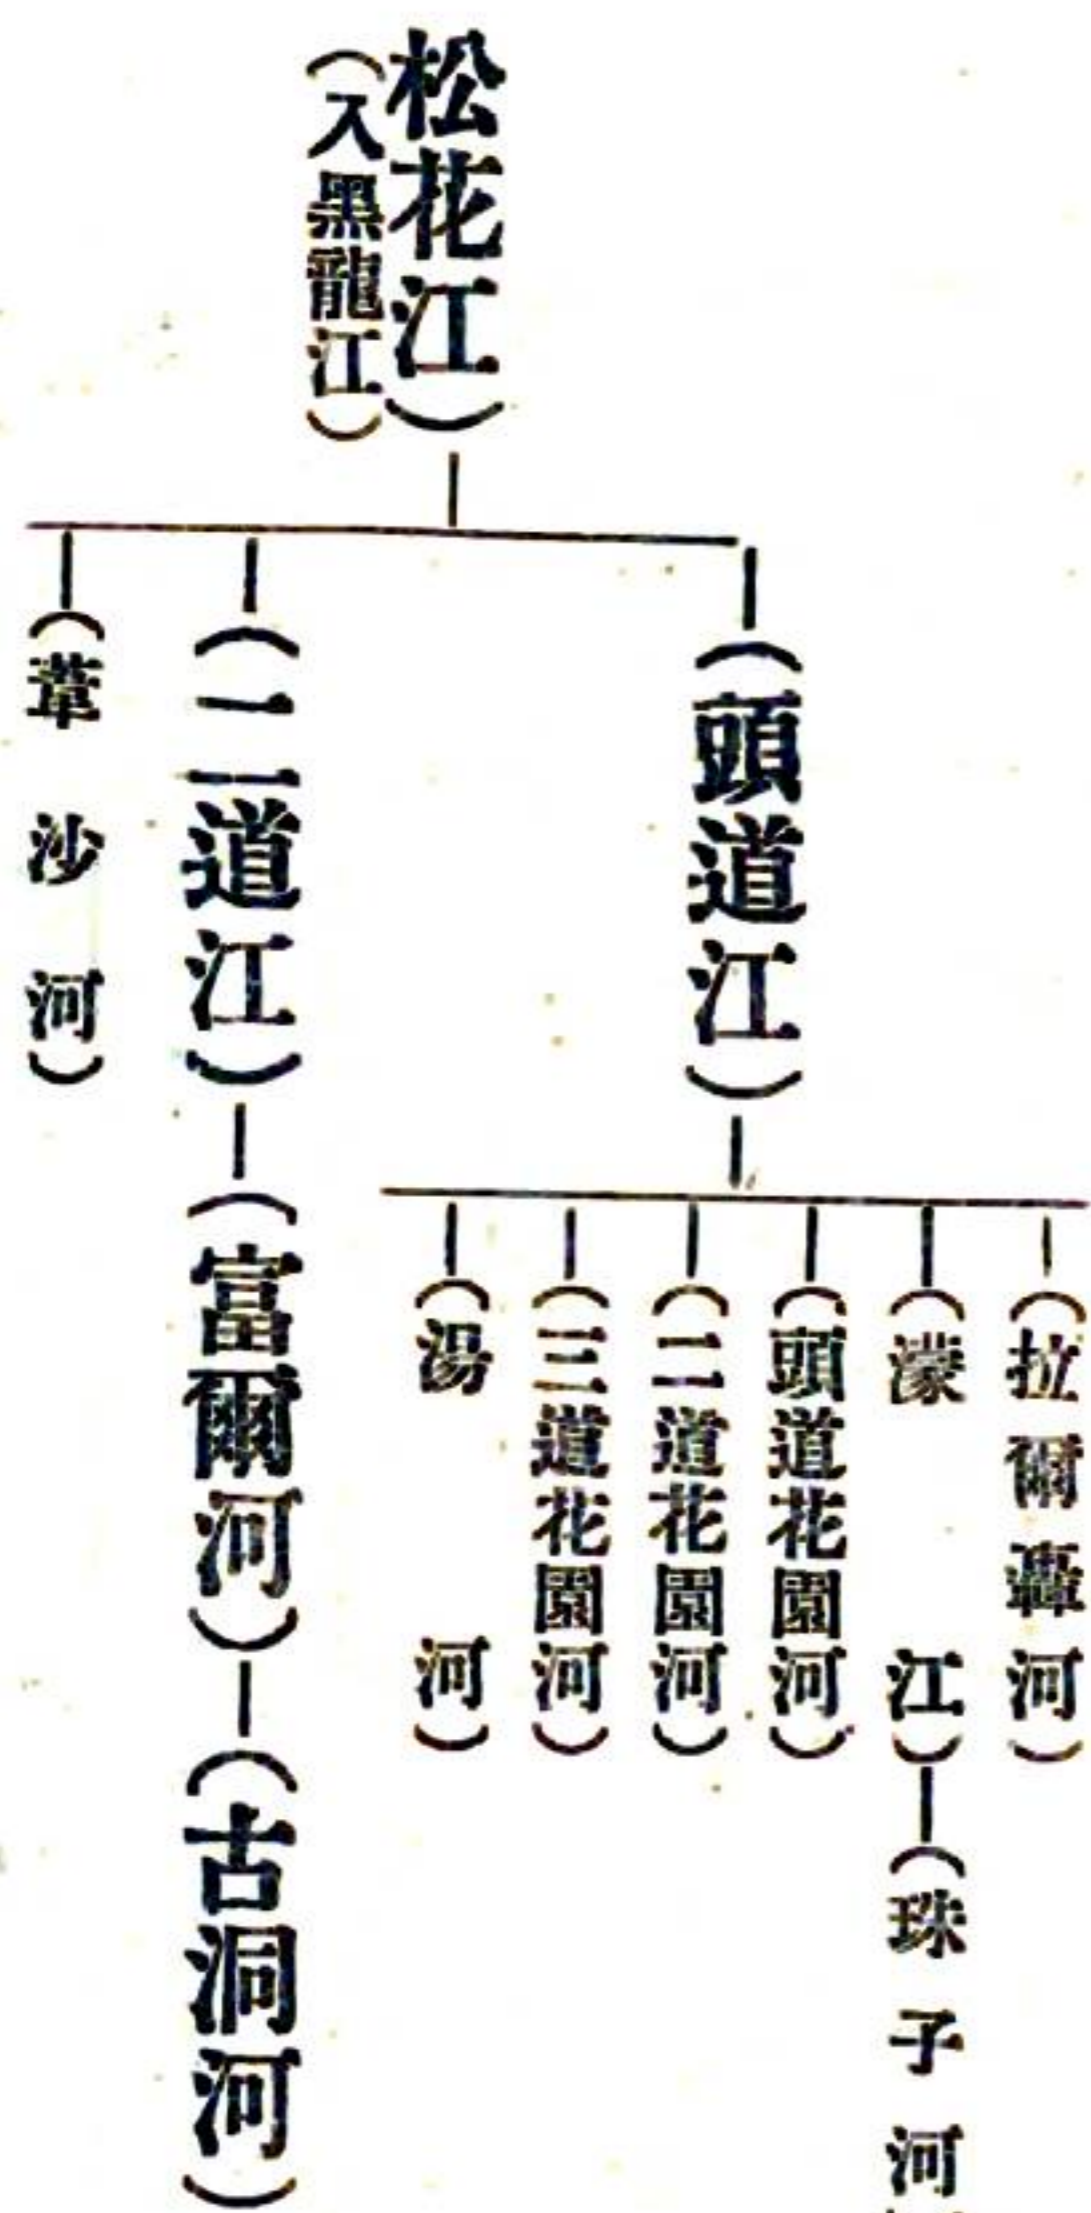 松花江）
（入黑龍江）
（頭道江）
（拉爾轟河）
（濛江）
（珠子河
（頭道花園河）
（二道花園河）
（三道花園河）
（湯河）
（二道江）
（富爾河）
（古洞河）
（葦沙河）